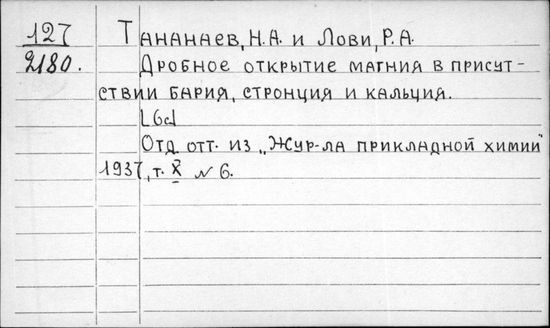 127 Тананаев, Н.А. и Лови, Р.А.
2180. Дробное открытие магния в присут-
ствии бария, стронция и кальция.
Отд. отт. из „Жур-ла прикладной химии"
1937, т. X № 6.